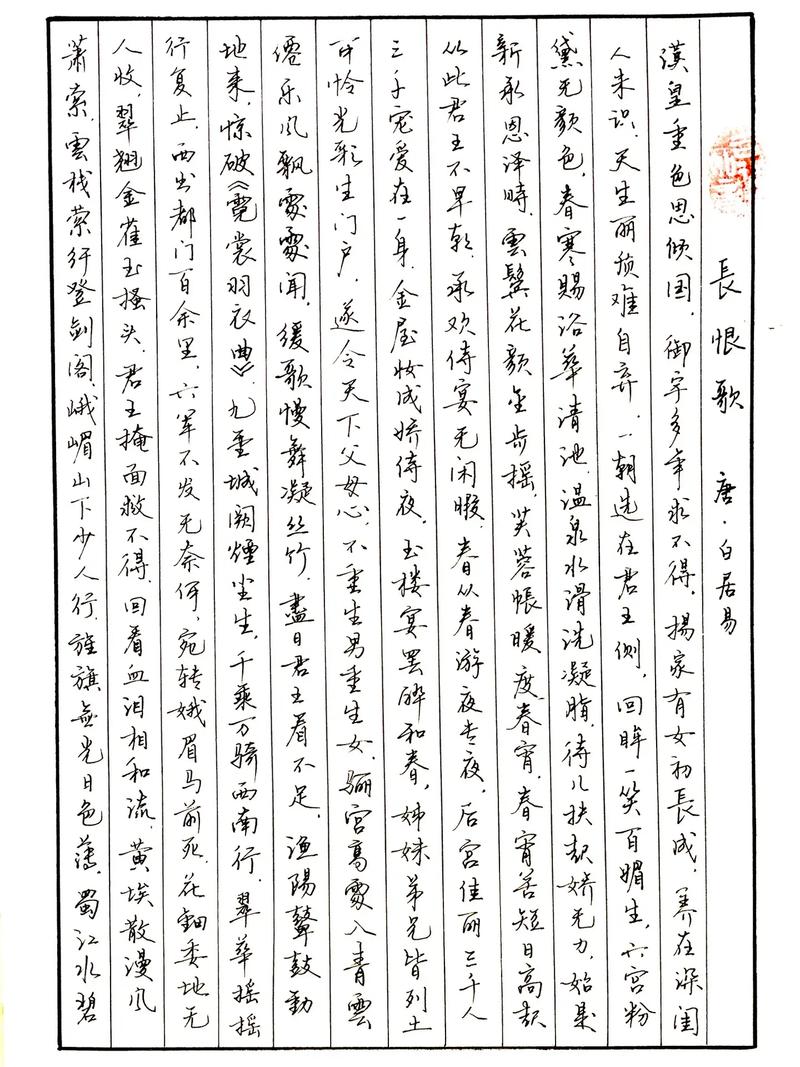 長恨歌 唐·白居易
漢皇重色思倾国，御宇多年求不得，楊家有女初長成，养在深闺
人未识，天生丽质难自弃，一朝选在君王侧，回眸一笑百媚生，六宫粉
黛无颜色，春寒赐浴華清池，温泉水滑洗凝脂，侍儿扶起娇无力，始是
新承恩泽時，雲鬓花颜金步摇，芙蓉帳暖度春宵，春宵苦短日高起
从此君王不早朝，承欢侍宴无闲暇，春从春游夜专夜，后宫佳丽三千人
三千宠爱在一身，金屋妆成娇侍夜，玉楼宴罢醉和春，姊妹弟兄皆列土
可怜光彩生门户，遂令天下父母心，不重生男重生女，骊宫高處入青雲
僊乐風飘處處闻，缓歌慢舞凝丝竹，盡日君王看不足，渔陽鼙鼓動
地来，惊破《霓裳羽衣曲》，九重城阙煙尘生，千乘万骑西南行，翠華摇摇
行复止，西出都门百余里，六军不发无奈何，宛转娥眉马前死，花钿委地无
人收，翠翘金雀玉搔头，君王掩面救不得，回看血泪相和流，黄埃散漫风
萧索，雲栈萦纡登剑阁，峨嵋山下少人行，旌旗無光日色薄，蜀江水碧